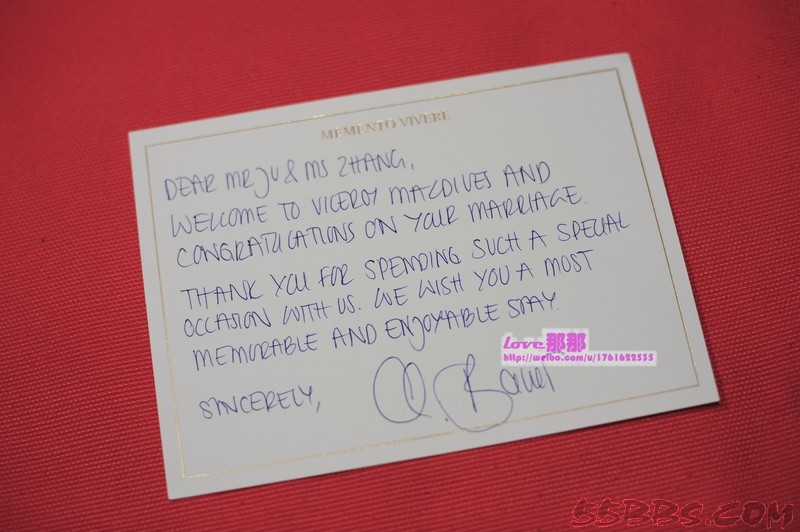 MEMENTO VIVERE
DEAR MR JU & MS ZHANG,
WELCOME TO VICEROY MALDIVES AND
CONGRATULATIONS ON YOUR MARRIAGE.
THANK YOU FOR SPENDING SUCH A SPECIAL
OCCASION WITH US. WE WISH YOU A MOST
MEMORABLE AND ENJOYABLE STAY.
SINCERELY,
love那那
http://weibo.com/u/1761622555
55BBS.COM